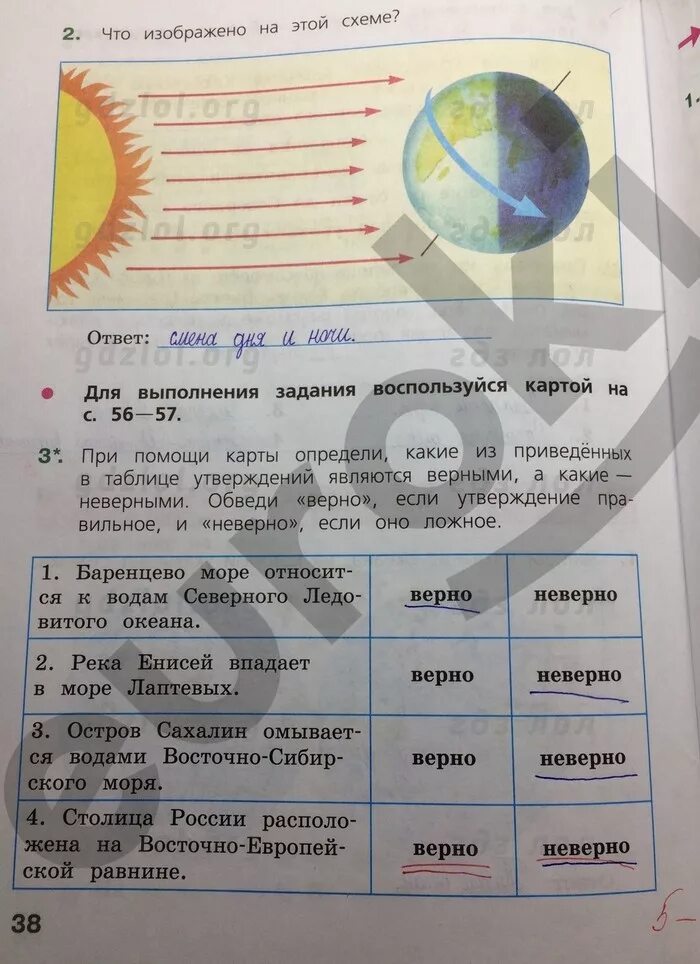 2. Что изображено на этой схеме?
1.
gdzlol.org
гдз лол
gdzlol.org
Ответ: смена дня и ночи.
gdzlol.org
гдз лол
• Для выполнения задания воспользуйся картой на
с. 56—57.
3*. При помощи карты определи, какие из приведённых
в таблице утверждений являются верными, а какие —
неверными. Обведи «верно», если утверждение пра-
вильное, и «неверно», если оно ложное.
1. Баренцево море относит-
ся к водам Северного Ледо-
витого океана.
верно
неверно
2. Река Енисей впадает
в море Лаптевых.
верно
неверно
3. Остров Сахалин омывает-
ся водами Восточно-Сибир-
ского моря.
верно
неверно
4. Столица России располо-
жена на Восточно-Европей-
ской равнине.
верно
неверно
38
5-
euroki